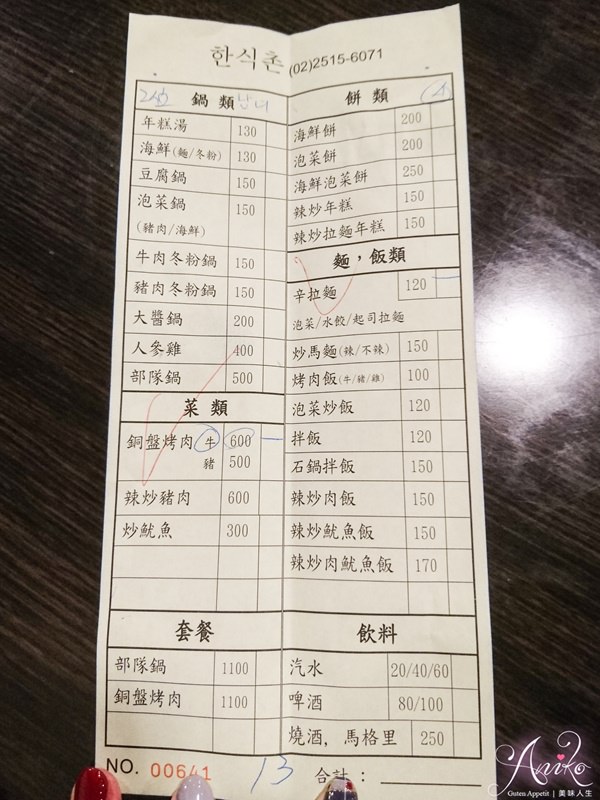 한식촌 (02)2515-6071
鍋類
年糕湯 130
海鮮(麵/冬粉) 130
豆腐鍋 150
泡菜鍋 150
(豬肉/海鮮)
牛肉冬粉鍋 150
豬肉冬粉鍋 150
大醬鍋 200
人參雞 400
部隊鍋 500
菜類
銅盤烤肉 牛 600
豬 500
辣炒豬肉 600
炒魷魚 300
套餐
部隊鍋 1100
銅盤烤肉 1100
餅類
海鮮餅 200
泡菜餅 200
海鮮泡菜餅 250
辣炒年糕 150
辣炒拉麵年糕 150
麵，飯類
辛拉麵 120
泡菜/水餃/起司拉麵
炒馬麵(辣/不辣) 150
烤肉飯(牛/豬/雞) 100
泡菜炒飯 120
拌飯 120
石鍋拌飯 150
辣炒肉飯 150
辣炒魷魚飯 150
辣炒肉魷魚飯 170
飲料
汽水 20/40/60
啤酒 80/100
燒酒, 馬格里 250
NO. 00641 13 合計：
Aniko
Guten Appetit | 美味人生